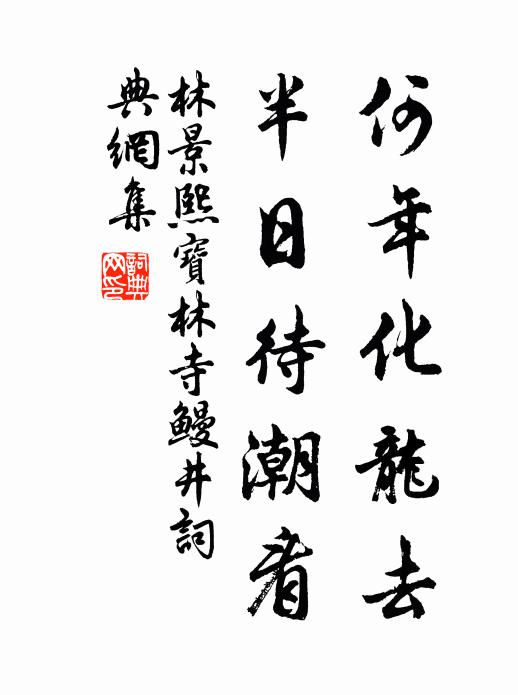 何年化龍去
半日待潮看
林景熙寶林寺鰻井詞
典網集
詞典网印